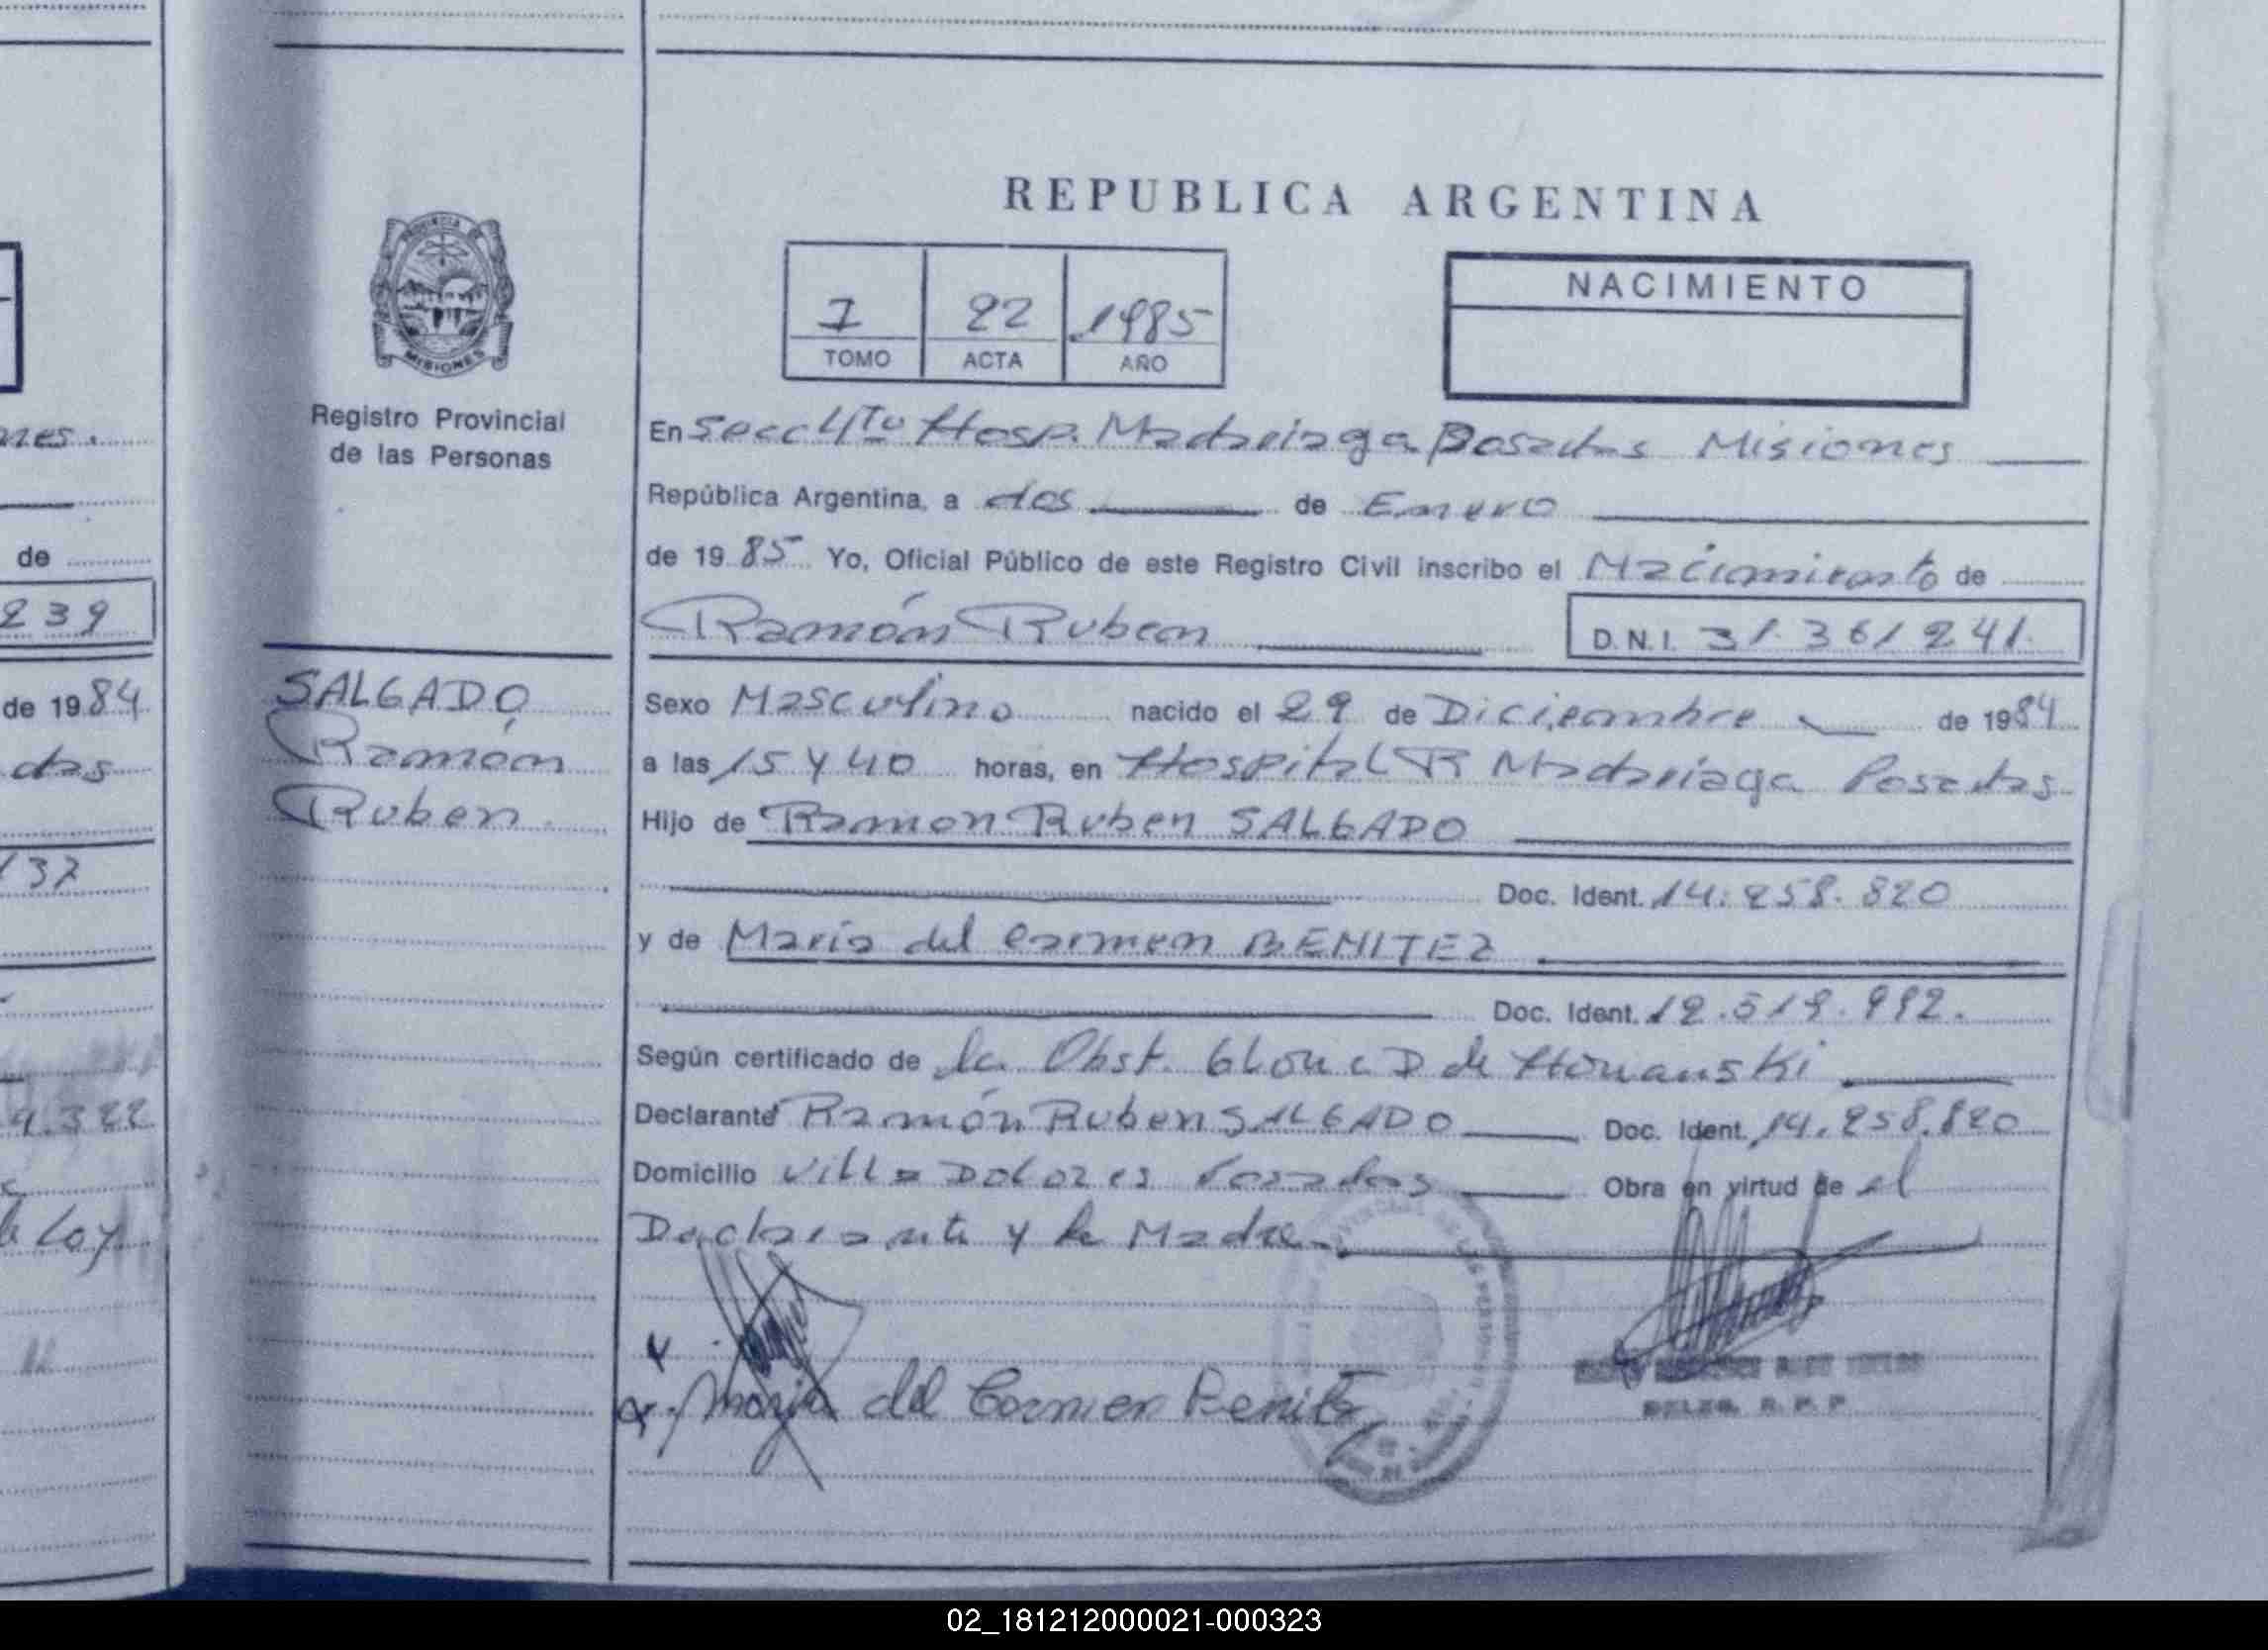 REPUBLICA ARGENTINA
PROVINCIA DE
MISIONES
Registro Provincial
de las Personas
I 22 1985
TOMO ACTA AÑO
NACIMIENTO
En Secc 4ta Hosp. Madariaga Posadas Misiones
República Argentina, a dos de Enero
de 1985 Yo, Oficial Público de este Registro Civil inscribo el Nacimiento de
Ramón Ruben
D.N.I. 31.361241.
SALGADO
Ramón
Ruben
Sexo Masculino nacido el 29 de Diciembre de 1984
a las 15 y 40 horas, en Hospital R Madariaga Posadas
Hijo de Ramon Ruben SALGADO
Doc. Ident. 14.258.820
y de Maria del Carmen BENITEZ
Doc. Ident. 12.519.992.
Según certificado de la Obst. D de
Declarante Ramón Ruben SALGADO Doc. Ident. 14.258.820
Domicilio Villa Dolores Posadas Obra en virtud de el
Declarante y la Madre
Maria del Carmen Benitez
DELEG. R. P. P.
nes.
de
239
de 1984
das
137
9.322
de Loy
02_181212000021-000323